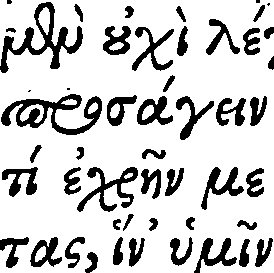 μὲν οὐχὶ λέγ
προσάγειν
τί ἐχρῆν με
τας, ἵν' ὑμῖν